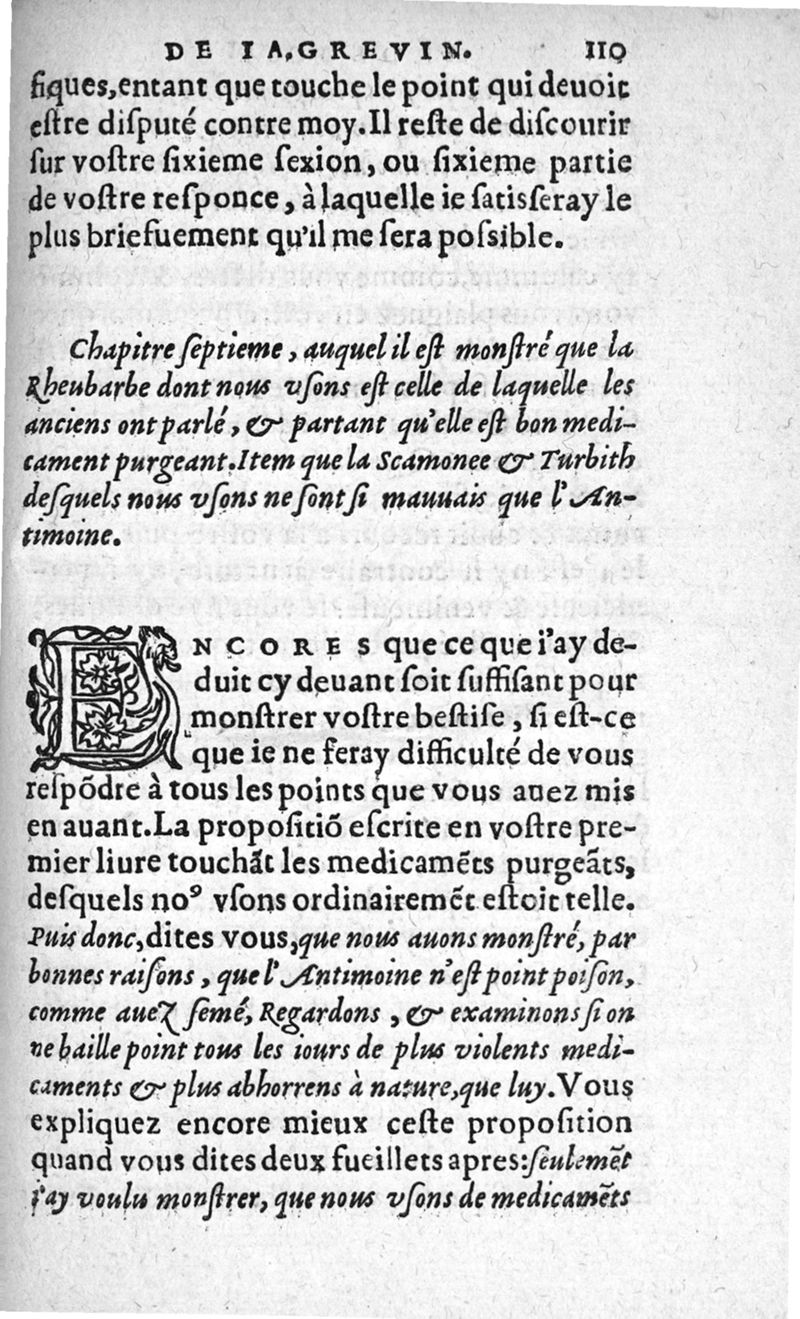 DE IA. GREVIN. 119
fiques, entant que touche le point qui deuoit
estre disputé contre moy. Il reste de discourir
sur vostre sixieme sexion, ou sixieme partie
de vostre responce, à laquelle ie satisferay le
plus briefuement qu'il me sera possible.
Chapitre septieme, auquel il est monstré que la
Rheubarbe dont nous vsons est celle de laquelle les
anciens ont parlé, & partant qu'elle est bon medi-
cament purgeant. Item que la Scamonee & Turbith
desquels nous vsons ne sont si mauuais que l'An-
timoine.
ENCORES que ce que i'ay de-
duit cy deuant soit suffisant pour
monstrer vostre bestise, si est-ce
que ie ne feray difficulté de vous
respõdre à tous les points que vous auez mis
en auant. La propositiõ escrite en vostre pre-
mier liure touchãt les medicamẽts purgeãts,
desquels noꝰ vsons ordinairemẽt estoit telle.
Puis donc, dites vous, que nous auons monstré, par
bonnes raisons, que l'Antimoine n'est point poison,
comme auez semé, Regardons, & examinons si on
ne baille point tous les iours de plus violents medi-
caments & plus abhorrens à nature, que luy. Vous
expliquez encore mieux ceste proposition
quand vous dites deux fueillets apres: seulemẽt
i'ay voulu monstrer, que nous vsons de medicamẽts